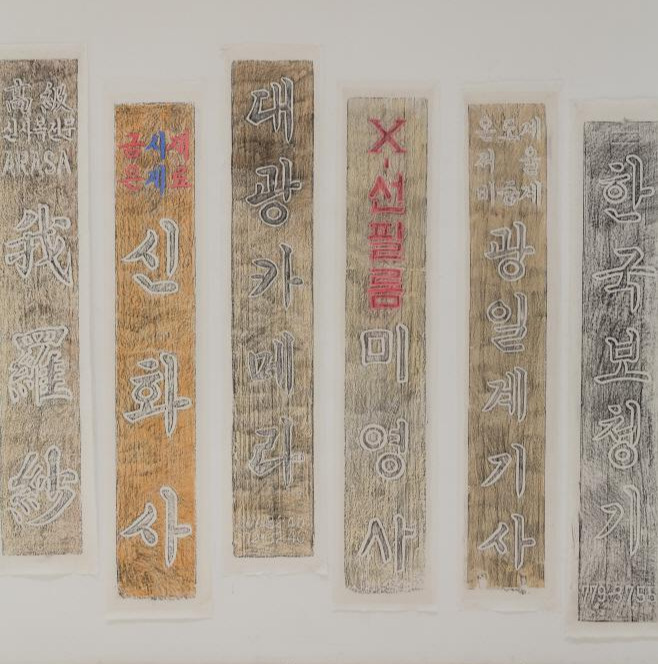 高級
ARASA
我羅紗
금시계
은세료
신화사
대광카메라
X-선필름
미영사
온도계
저울
비중계
광일계기사
한국보청기